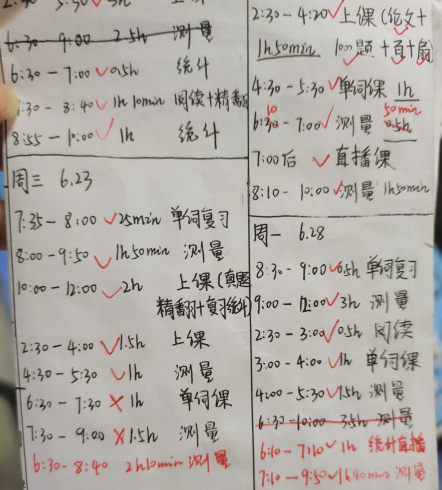 6:30-9:00 2.5h 测量
6:30-7:00 ✓0.5h 统计
7:30-8:40✓1h10min 阅读+精翻
8:55-10:00✓1h 统计
周三 6.23
7:35-8:00✓25min 单词复习
8:00-9:50✓1h50min 测量
10:00-12:00✓2h 上课(真题
精翻+复习统计
2:30-4:00✓1.5h 上课
4:30-5:30✓1h 测量
6:30-7:30×1h 单词课
7:30-9:00×1.5h 测量
6:30-8:40 2h10min 测量
2:30-4:20✓上课(论文+
1h50min 100题+百+扇)
4:30-5:30✓单词课 1h
10 50min
6:30-7:00✓测量 0.5h
7:00后 ✓直播课
8:10-10:00✓测量 1h50min
周一 6.28
8:30-9:00✓0.5h 单词复习
9:00-12:00✓3h 测量
2:30-3:00✓0.5h 阅读
3:00-4:00✓1h 单词课
4:00-5:30✓1.5h 测量
6:30-10:00 3.5h 测量
6:10-7:10✓1h 统计直播
7:10-9:50✓1h40min 测量